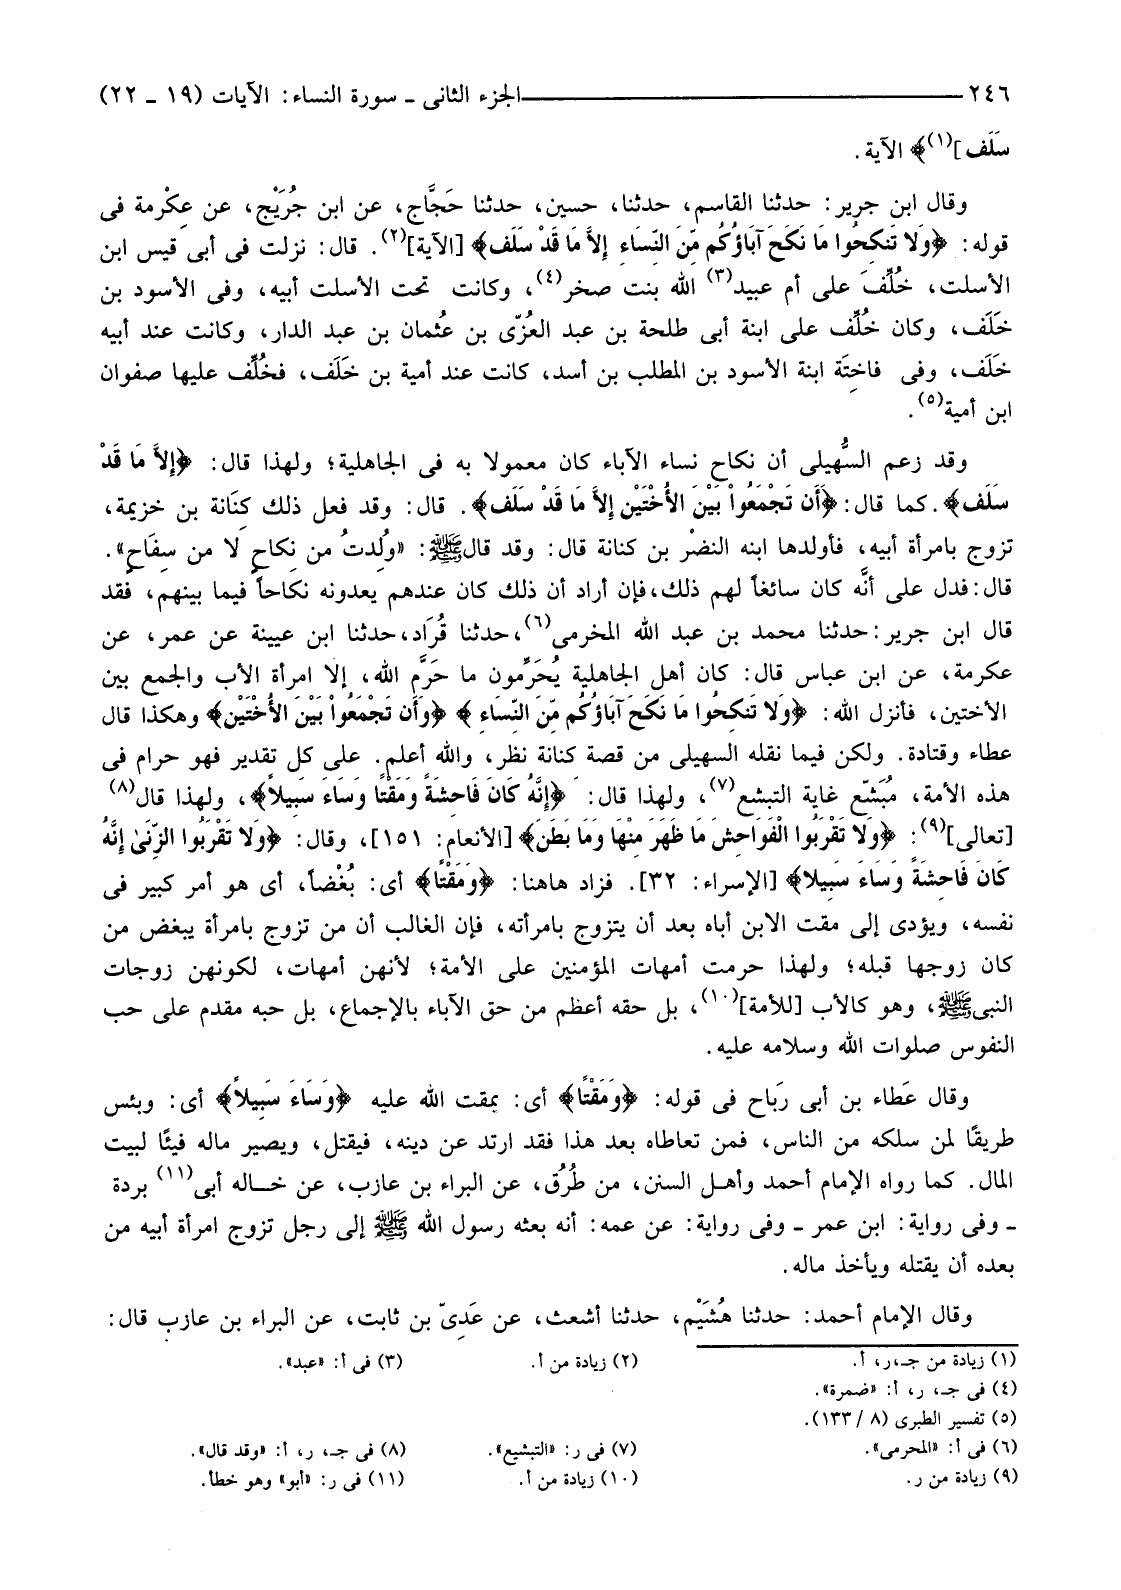 ٢٤٦ ــــــــــــــــــــــــــــ الجزء الثانى ـ سورة النساء: الآيات (١٩ ـ ٢٢)
سَلَف](١)﴾ الآية.
وقال ابن جرير: حدثنا القاسم، حدثنا، حسين، حدثنا حَجَّاج، عن ابن جُرَيْج، عن عِكْرمة فى
قوله: ﴿وَلا تَنكِحُوا مَا نَكَحَ آبَاؤُكُم مِّنَ النِّسَاءِ إِلاَّ مَا قَدْ سَلَف﴾ [الآية](٢). قال: نزلت فى أبى قيس ابن
الأسلت، خُلِّفَ على أم عبيد(٣) الله بنت صخر(٤)، وكانت تحت الأسلت أبيه، وفى الأسود بن
خَلَف، وكان خُلِّف على ابنة أبى طلحة بن عبد العُزّى بن عثمان بن عبد الدار، وكانت عند أبيه
خَلَف، وفى فاخِتَة ابنة الأسود بن المطلب بن أسد، كانت عند أمية بن خَلَف، فخُلِّف عليها صفوان
ابن أمية(٥).
وقد زعم السُّهيلى أن نكاح نساء الآباء كان معمولا به فى الجاهلية؛ ولهذا قال: ﴿إِلاَّ مَا قَدْ
سَلَف﴾. كما قال: ﴿أَن تَجْمَعُواْ بَيْنَ الأُخْتَيْن إلاَّ مَا قَدْ سَلَف﴾. قال: وقد فعل ذلك كنَانة بن خزيمة،
تزوج بامرأة أبيه، فأولدها ابنه النضْر بن كنانة قال: وقد قال ﷺ: «وُلِدتُ من نِكاحٍ لا من سِفَاحٍ».
قال: فدل على أنَّه كان سائغاً لهم ذلك، فإن أراد أن ذلك كان عندهم يعدونه نكاحاً فيما بينهم، فقد
قال ابن جرير: حدثنا محمد بن عبد الله المخرمى(٦)، حدثنا قُرَاد، حدثنا ابن عيينة عن عمر، عن
عكرمة، عن ابن عباس قال: كان أهل الجاهلية يُحَرِّمون ما حَرَّم الله، إلا امرأة الأب والجمع بين
الأختين، فأنزل الله: ﴿وَلا تَنكِحُوا مَا نَكَحَ آبَاؤُكُم مِّنَ النِّسَاءِ﴾ ﴿وَأَن تَجْمَعُواْ بَيْنَ الأُخْتَيْن﴾ وهكذا قال
عطاء وقتادة. ولكن فيما نقله السهيلى من قصة كنانة نظر، والله أعلم. على كل تقدير فهو حرام فى
هذه الأمة، مُبَشّع غاية التبشع(٧)، ولهذا قال: ﴿إِنَّهُ كَانَ فَاحِشَةً وَمَقْتًا وَسَاءَ سَبِيلاً﴾، ولهذا قال(٨)
[تعالى](٩): ﴿وَلا تَقْرَبُوا الْفَوَاحِشَ مَا ظَهَرَ مِنْهَا وَمَا بَطَنَ﴾ [الأنعام: ١٥١]، وقال: ﴿وَلا تَقْرَبُوا الزِّنَىٰ إِنَّهُ
كَانَ فَاحِشَةً وَسَاءَ سَبِيلا﴾ [الإسراء: ٣٢]. فزاد هاهنا: ﴿وَمَقْتًا﴾ أى: بُغْضاً، أى هو أمر كبير فى
نفسه، ويؤدى إلى مقت الابن أباه بعد أن يتزوج بامرأته، فإن الغالب أن من تزوج بامرأة يبغض من
كان زوجها قبله؛ ولهذا حرمت أمهات المؤمنين على الأمة؛ لأنهن أمهات، لكونهن زوجات
النبى ﷺ، وهو كالأب [للأمة](١٠)، بل حقه أعظم من حق الآباء بالإجماع، بل حبه مقدم على حب
النفوس صلوات الله وسلامه عليه.
وقال عَطاء بن أبى رَباح فى قوله: ﴿وَمَقْتًا﴾ أى: يمقت الله عليه ﴿وَسَاءَ سَبِيلاً﴾ أى: وبئس
طريقًا لمن سلكه من الناس، فمن تعاطاه بعد هذا فقد ارتد عن دينه، فيقتل، ويصير ماله فيئًا لبيت
المال. كما رواه الإمام أحمد وأهل السنن، من طُرُق، عن البراء بن عازب، عن خـاله أبى(١١) بردة
ـ وفى رواية: ابن عمر ـ وفى رواية: عن عمه: أنه بعثه رسول الله ﷺ إلى رجل تزوج امرأة أبيه من
بعده أن يقتله ويأخذ ماله.
وقال الإمام أحمد: حدثنا هُشَيْم، حدثنا أشعث، عن عَدِىّ بن ثابت، عن البراء بن عازب قال:
(١) زيادة من جـ،ر، أ. (٢) زيادة من أ. (٣) فى أ: «عبد».
(٤) فى جـ، ر، أ: «ضمرة».
(٥) تفسير الطبرى (٨ / ١٣٣).
(٦) فى أ: «المحرمى». (٧) فى ر: «التبشيع». (٨) فى جـ، ر، أ: «وقد قال».
(٩) زيادة من ر. (١٠) زيادة من أ. (١١) فى ر: «أبو» وهو خطأ.